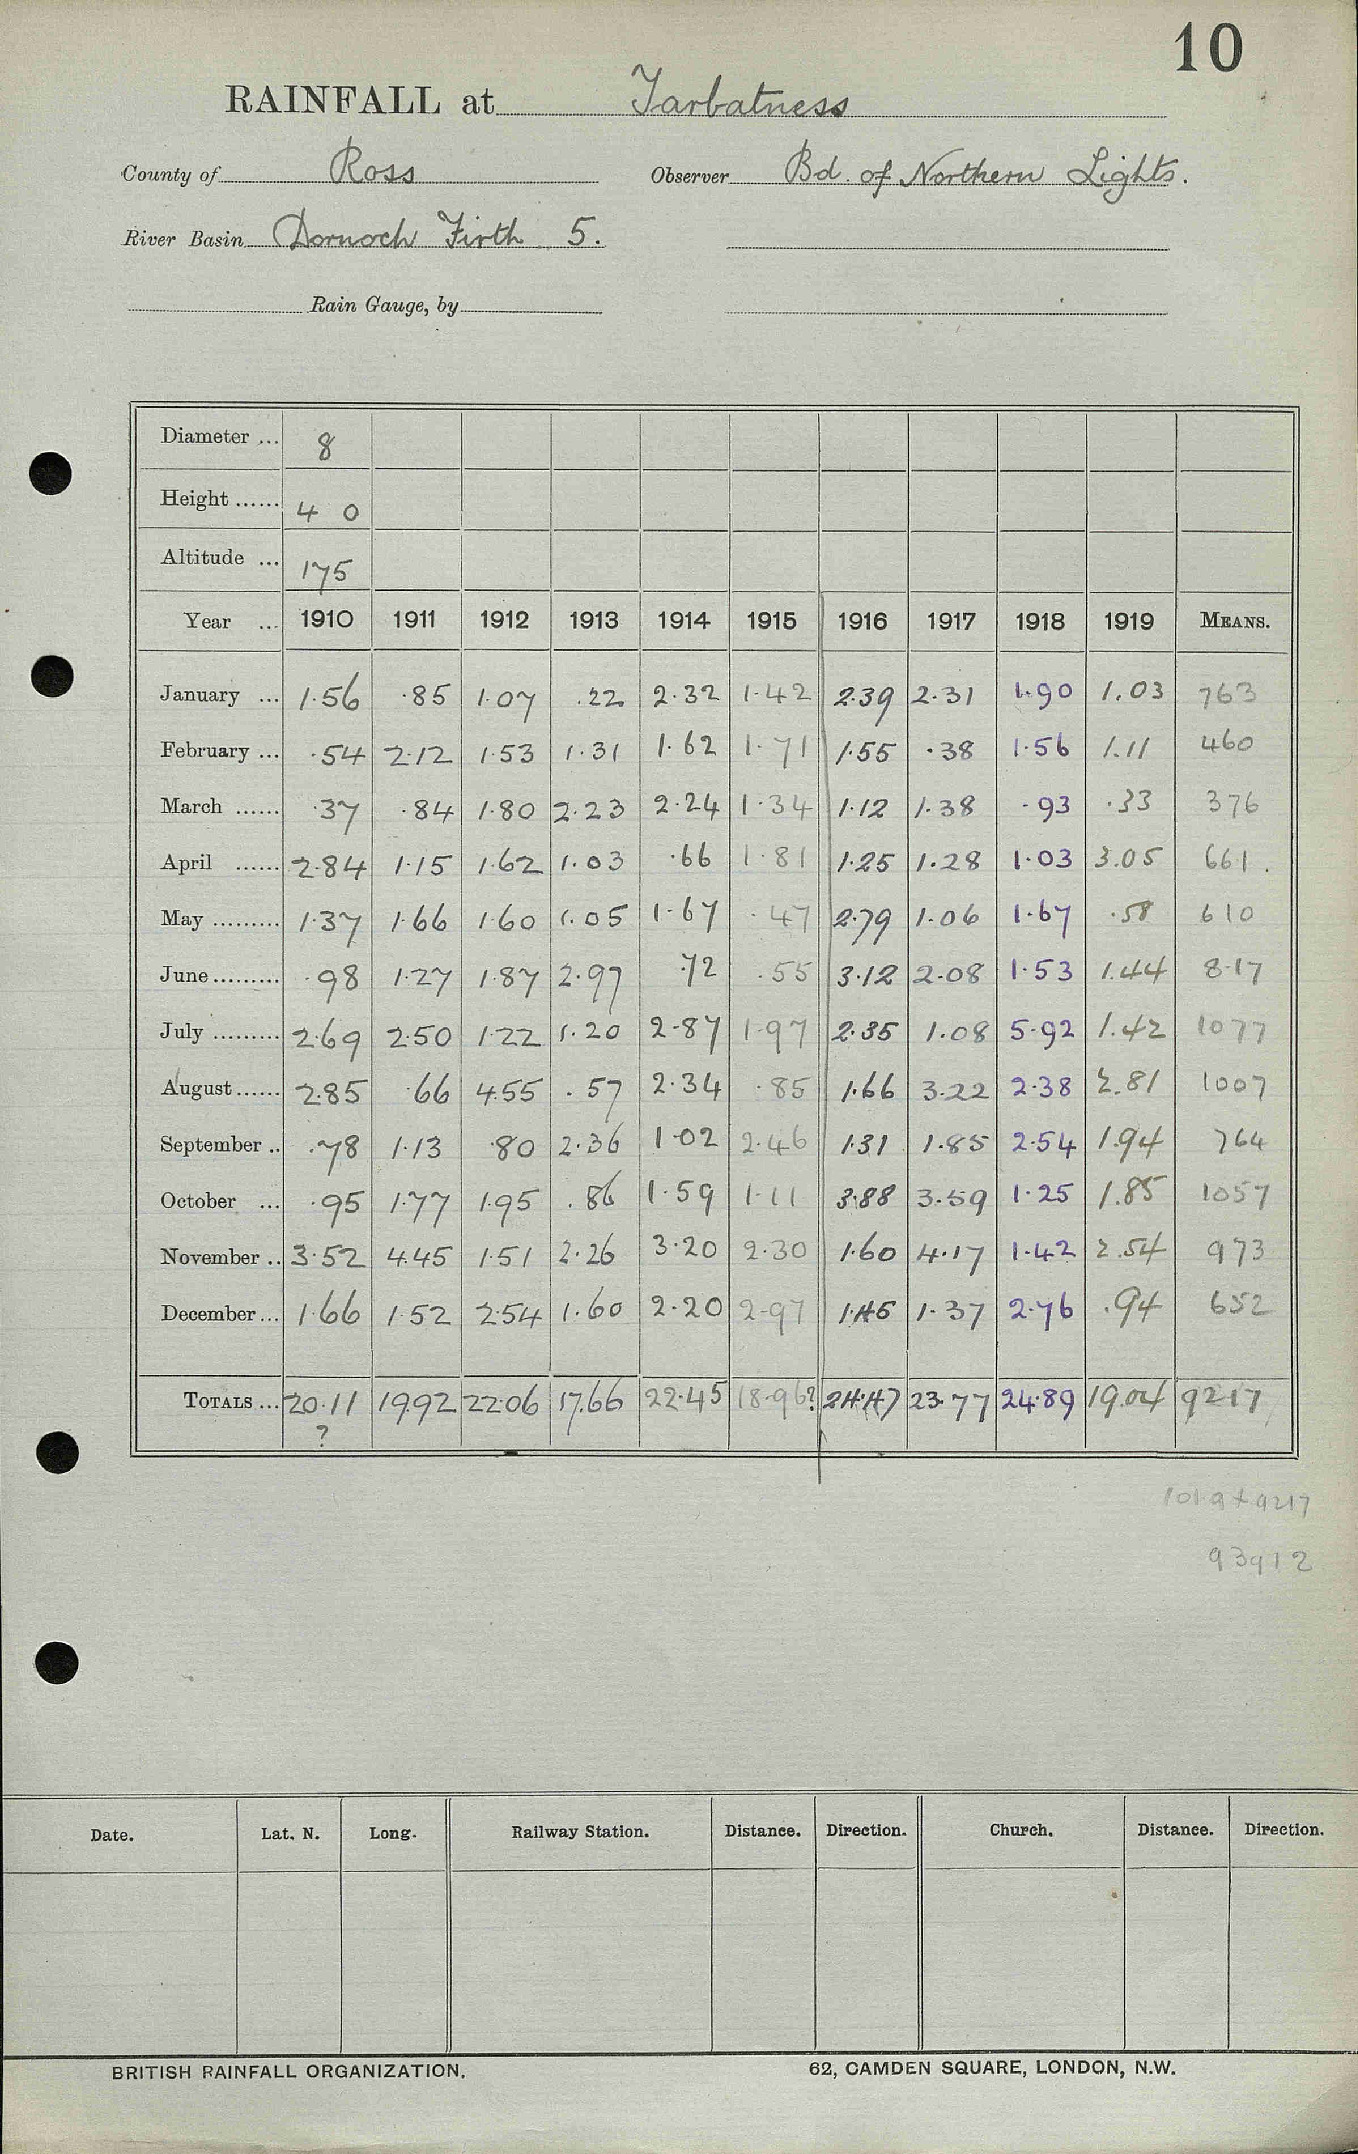 10
RAINFALL at Tarbatness
County of Ross Observer Bd. of Northern Lights.
River Basin Dornoch Firth 5.
Rain Gauge, by
Diameter ... 8
Height ...... 4 0
Altitude ... 175
Year ... 1910 1911 1912 1913 1914 1915 1916 1917 1918 1919 MEANS.
January ... 1.56 .85 1.07 .22 2.32 1.42 2.39 2.31 1.90 1.03 763
February ... .54 2.12 1.53 1.31 1.62 1.71 1.55 .38 1.56 1.11 460
March ...... .37 .84 1.80 2.23 2.24 1.34 1.12 1.38 .93 .33 376
April ...... 2.84 1.15 1.62 1.03 .66 1.81 1.25 1.28 1.03 3.05 661.
May ......... 1.37 1.66 1.60 1.05 1.67 .47 2.79 1.06 1.67 .58 610
June ......... .98 1.27 1.87 2.97 .72 .55 3.12 2.08 1.53 1.44 8.17
July ......... 2.69 2.50 1.22 1.20 2.87 1.97 2.35 1.08 5.92 1.42 1077
August ...... 2.85 .66 4.55 .57 2.34 .85 1.66 3.22 2.38 2.81 1007
September .. .78 1.13 .80 2.36 1.02 2.46 1.31 1.85 2.54 1.94 764
October ... .95 1.77 1.95 .86 1.59 1.11 3.88 3.59 1.25 1.85 1057
November .. 3.52 4.45 1.51 2.26 3.20 2.30 1.60 4.17 1.42 2.54 973
December ... 1.66 1.52 2.54 1.60 2.20 2.97 1.45 1.37 2.76 .94 652
TOTALS ... 20.11 19.92 22.06 17.66 22.45 18.96? 24.47 23.77 24.89 19.04 9217
?
1019+9217
93912
Date. Lat. N. Long. Railway Station. Distance. Direction. Church. Distance. Direction.
BRITISH RAINFALL ORGANIZATION. 62, CAMDEN SQUARE, LONDON, N.W.